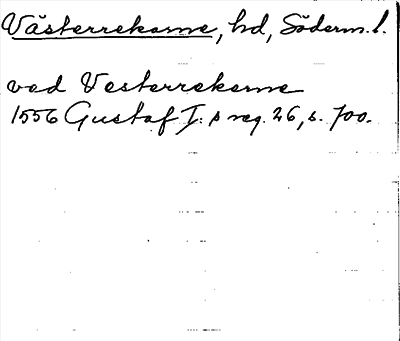 Västerrekarne, hd, Söderm. l.
vad Vesterrekerne
1556 Gustaf I:s reg. 26, s. 700.